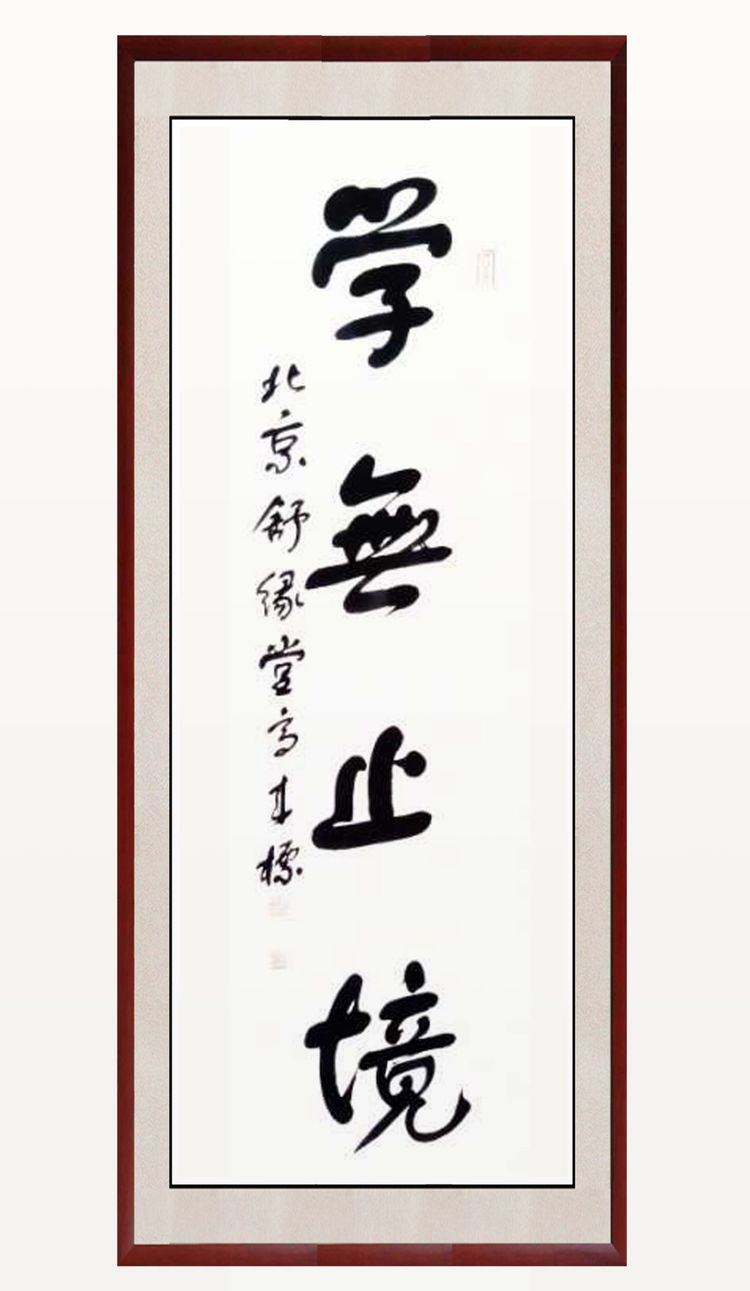 学無止境
北京舒缘堂高木標